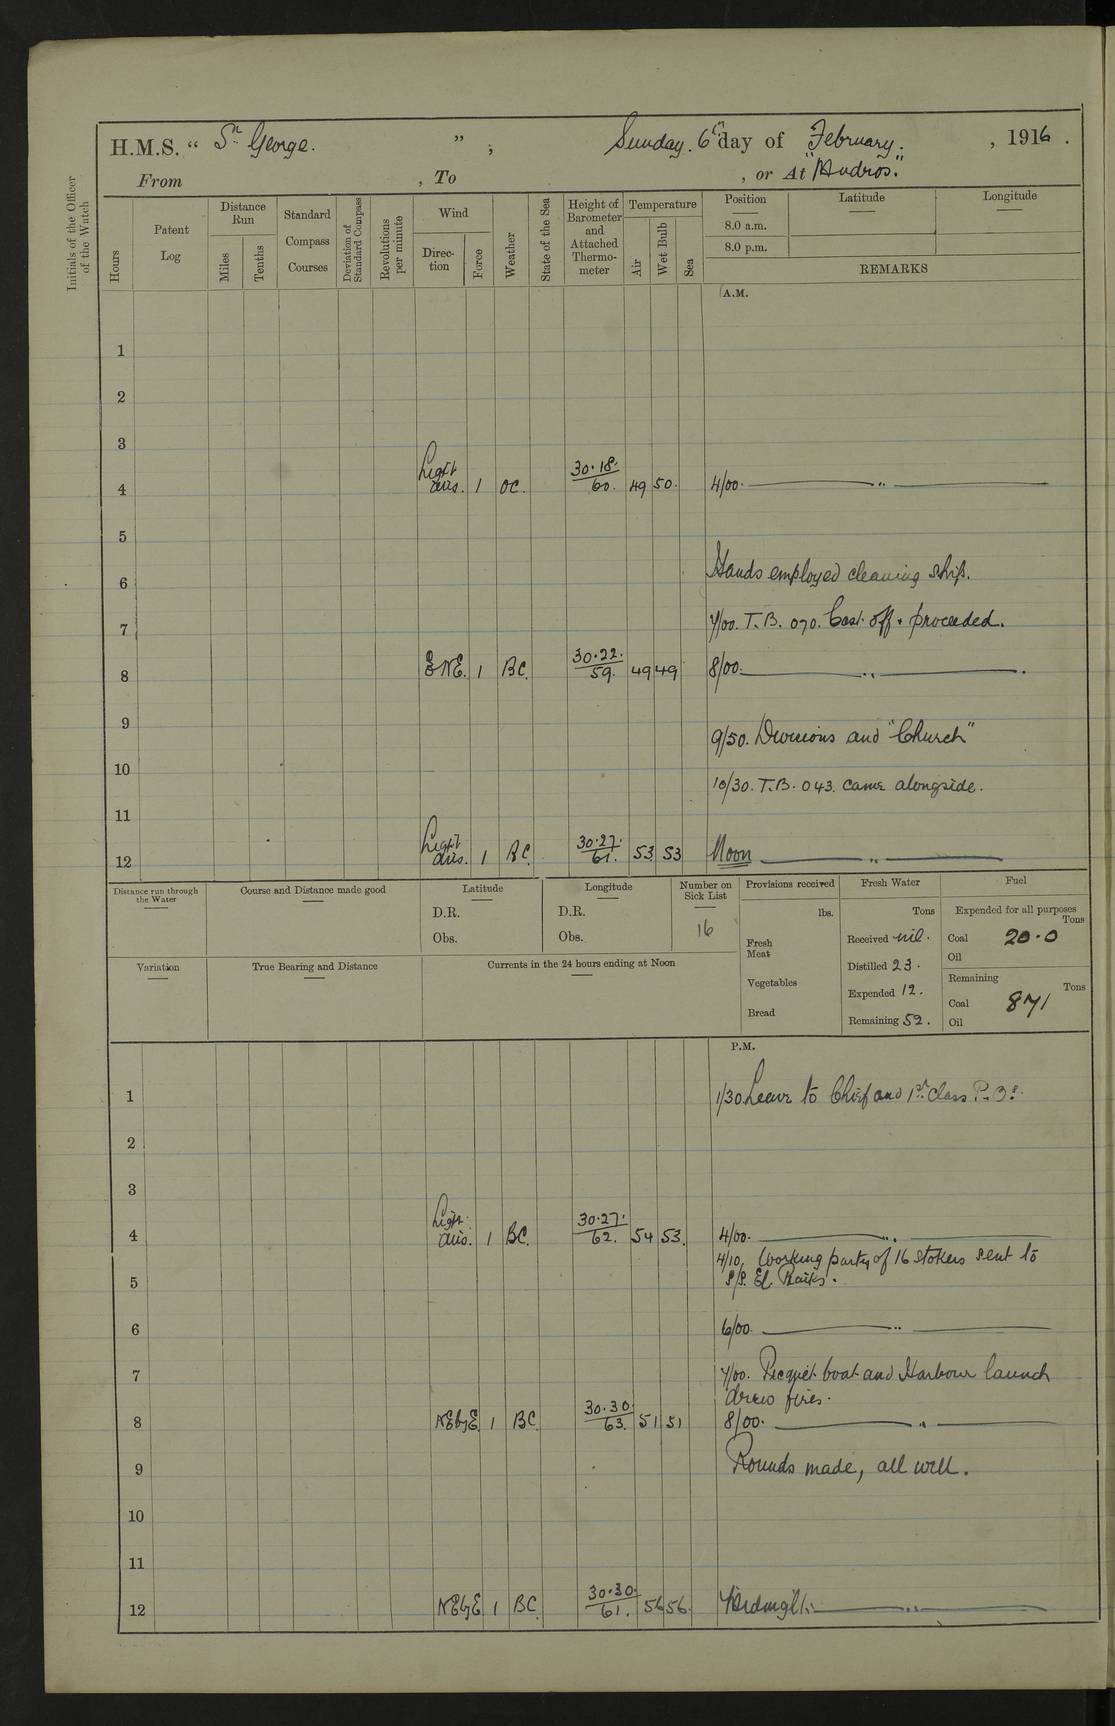 H.M.S. “ St. George. ” , Sunday. 6th day of February. , 1916 .
From , To , or At "Mudros."
Initials of the Officer of the Watch
Hours
Patent Log
Distance Run
Miles
Tenths
Standard Compass Courses
Deviation of Standard Compass
Revolutions per minute
Wind
Direction
Force
Weather
State of the Sea
Height of Barometer and Attached Thermometer
Temperature
Air
Wet Bulb
Sea
Position
8.0 a.m.
8.0 p.m.
Latitude
Longitude
REMARKS
A.M.
1
2
3
4 Light airs. 1 OC. 30.18. 60. 49 50. 4/00. ——— „ ———
5
6 Hands employed cleaning ship.
7 7/00. T.B. 070. Cast off & proceeded.
8 ENE. 1 BC. 30.22. 59. 49 49 8/00. ——— „ ———.
9 9/50. Divisions and "Church"
10 10/30. T.B. 043. came alongside.
11
12 Light airs. 1 BC. 30.27. 61. 53 53 Noon ——— „ ———
Distance run through the Water
Course and Distance made good
Latitude
D.R.
Obs.
Longitude
D.R.
Obs.
Number on Sick List
16
Provisions received
lbs.
Fresh Meat
Vegetables
Bread
Fresh Water
Tons
Received nil.
Distilled 23.
Expended 12.
Remaining 52.
Fuel
Expended for all purposes
Tons
Coal 20.0
Oil
Remaining
Tons
Coal 871
Oil
Variation
True Bearing and Distance
Currents in the 24 hours ending at Noon
P.M.
1 1/30 Leave to Chief and 1st Class P.Os.
2
3
4 Light airs. 1 BC. 30.27. 62. 54 53. 4/00. ——— „ ———
4/10. Working party of 16 stokers sent to
5 S/S. El
6 6/00. ——— „ ———
7 7/00. Picquet boat and Harbour launch
drew fires.
8 NEbyE. 1 BC. 30.30. 63. 51 51 8/00. ——— „ ———
9 Rounds made, all well.
10
11
12 NEbyE 1 BC. 30.30. 61. 56 56. Midnight. ——— „ ———